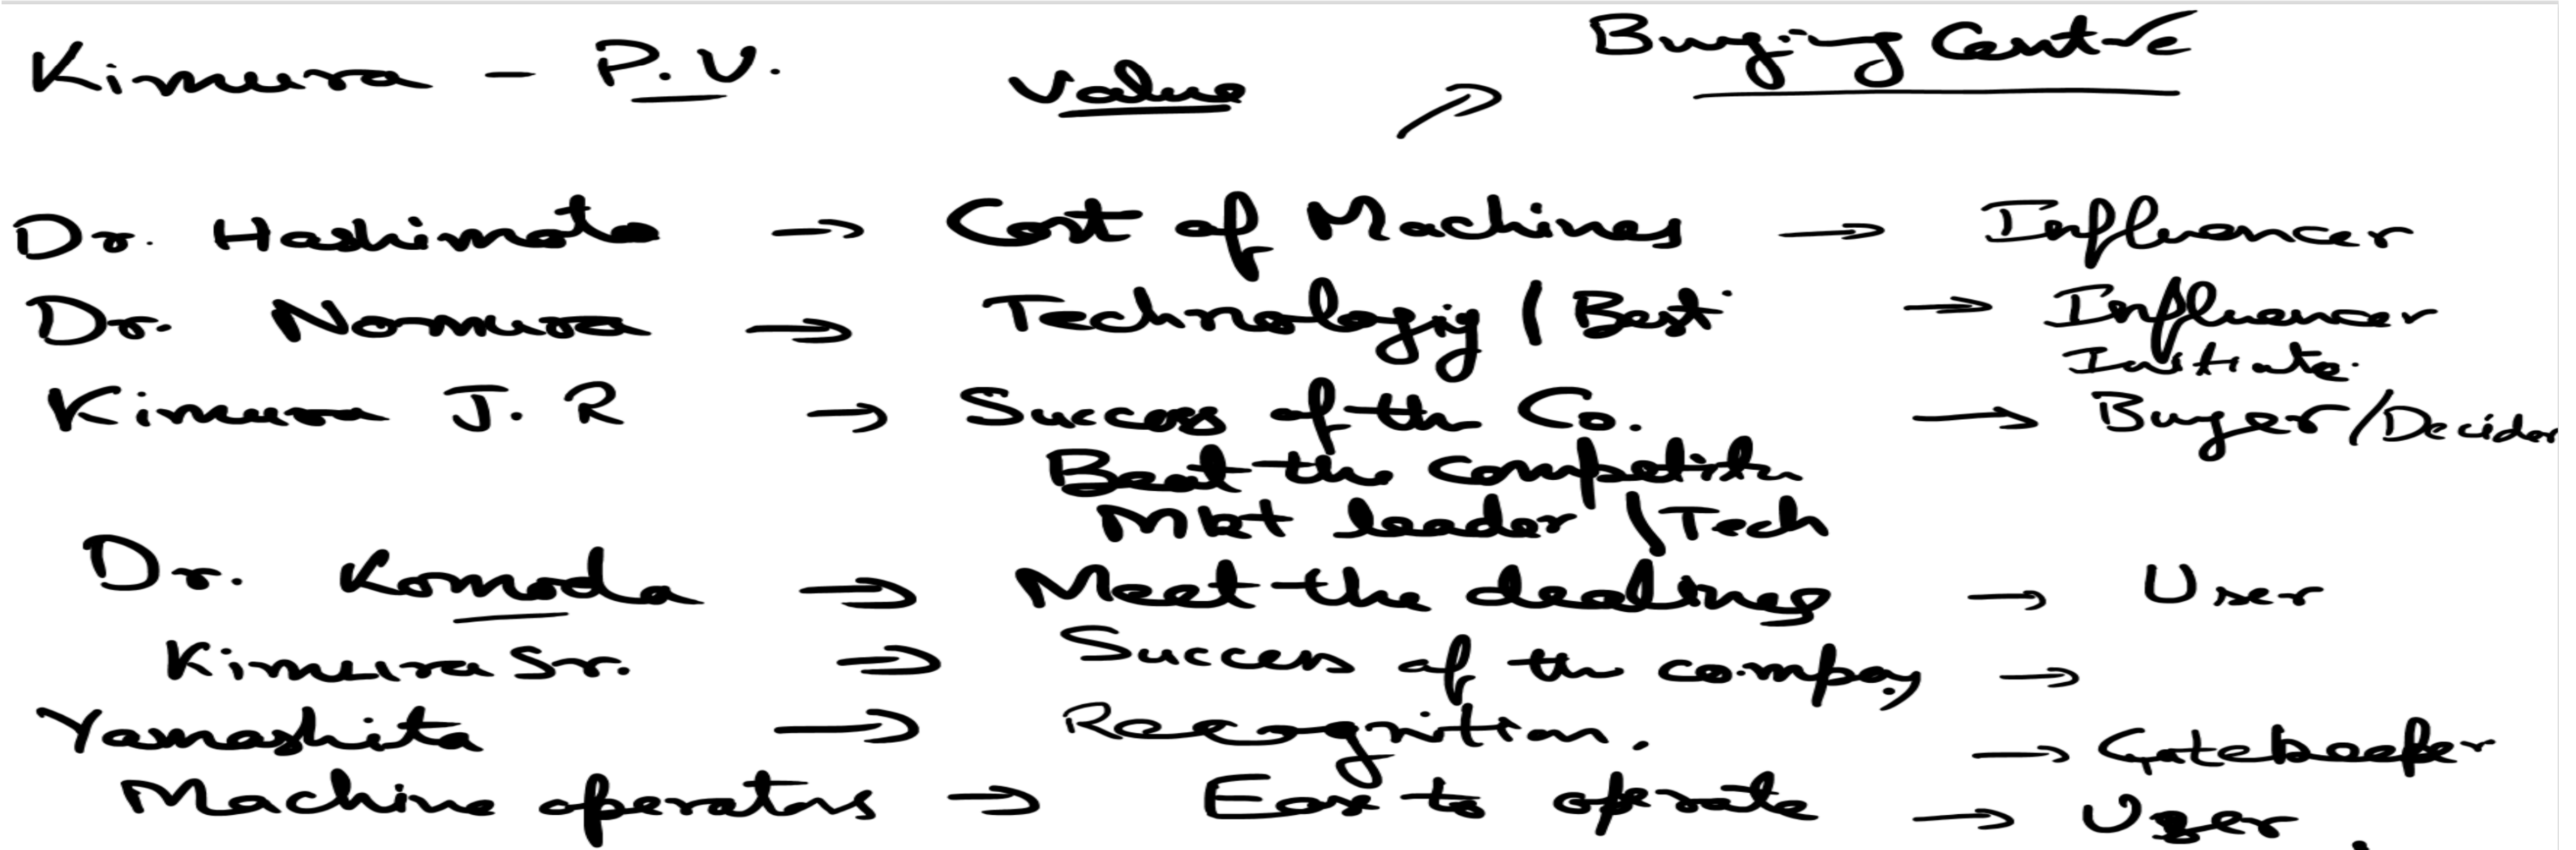 Kimura - P.V. Value → Buying Centre
Dr. Hashimoto → Cost of Machines → Influencer
Dr. Nomura → Technology / Best → Influencer
Initiate.
Kimura J.R → Success of the Co. → Buyer/Decider
Beat the competition
Mkt leader / Tech
Dr. Komoda → Meet the dealines → User
Kimura Sr. → Success of the company →
Yamashita → Recognition. → Gatekeeper
Machine operators → Ease to operate → User